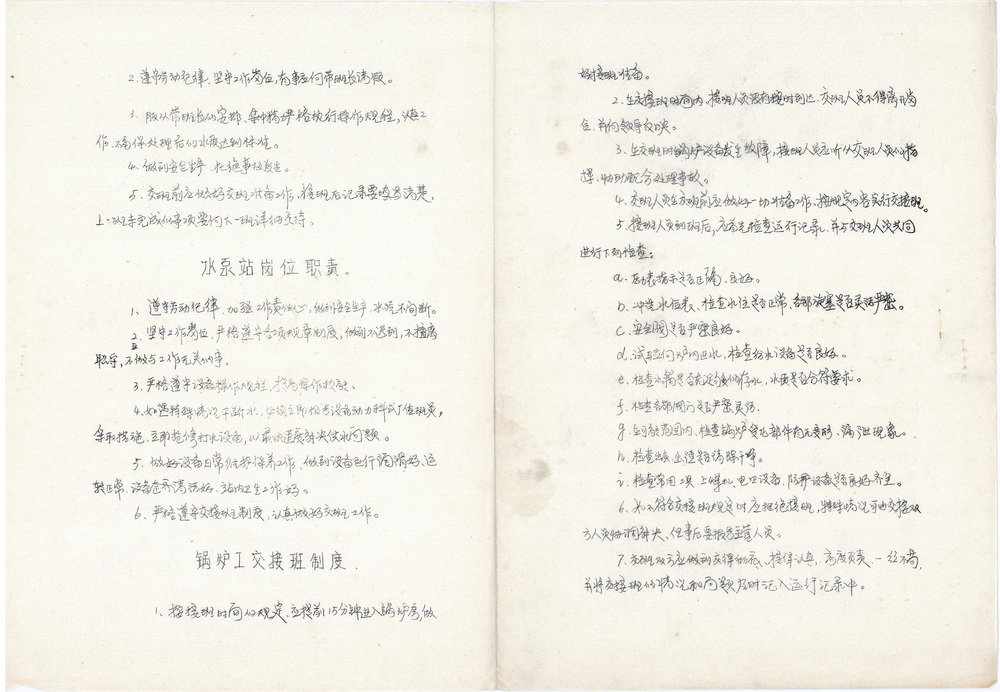 2.遵守劳动纪律、坚守工作岗位,有事应向带班长请假。
3.服从带班长的安排、集中精力严格执行操作规程,认真工
作、确保处理后的水质达到标准。
4.做到安全生产、杜绝事故发生。
5.交班前应做好交班准备工作,接班后记录要填写清楚,
上一班未完成的事项要向下一班详细交待。
水泵站岗位职责.
1、遵守劳动纪律、加强工作责任心、做到安全生产,水源不间断。
2.坚守工作岗位,严格遵守各项规章制度,做到不迟到,不擅离
职守,不做与工作无关的事。
3.严格遵守设备操作规程,
4.如遇特殊情况干断水,必须立即报告设备动力科或厂值班员,
采取措施、立即抢修打水设备,以最快速度解决供水问题。
5.做好设备日常维护保养工作,做到设备运行润滑好,运
转正常、设备世界清洁好、站内卫生工作好。
6.严格遵守交接班制度,认真做好交班工作。
锅炉工交接班制度.
1、按接班时间的规定、应提前15分钟进入锅炉房,做
好接班准备。
2.在交接班时间内,接班人员没有按时到达,交班人员不得离开岗
位.并向领导反映。
3.在交班时锅炉设备发生故障,接班人员应听从交班人员的指
挥、协助配合处理事故。
4.交班人员在交班前应做好一切准备工作、按规定内容实行交接班。
5.接班人员到班后,应首先检查运行记录,并与交班人员共同
进行下列检查:
a.压力表指示是否正确、良好。
b.冲洗水位表、检查水位是否正常,各部旋塞是否灵活严密。
c.安全阀是否严密良好。
d.试车向炉内进水,检查给水设备是否良好。
e.检查水箱是否有足够的存水,水质是否合符要求。
f.检查各部阀门是否严密灵活.
g.在可能范围内、检查锅炉受压部件有无变形、漏泄现象。
h.检查是否清除干净。
i.检查常用工具、上煤机、电四设备、防护设备是否良好齐全。
6.如不符合交接班规定时应拒绝接班,特殊情况可由交接双
方人员协调解决、但事后要报告主管人员。
7.交接班双方应做到交得彻底、接得认真、高度负责、一丝不苟,
并将交接班的情况和问题及时记入运行记录中。